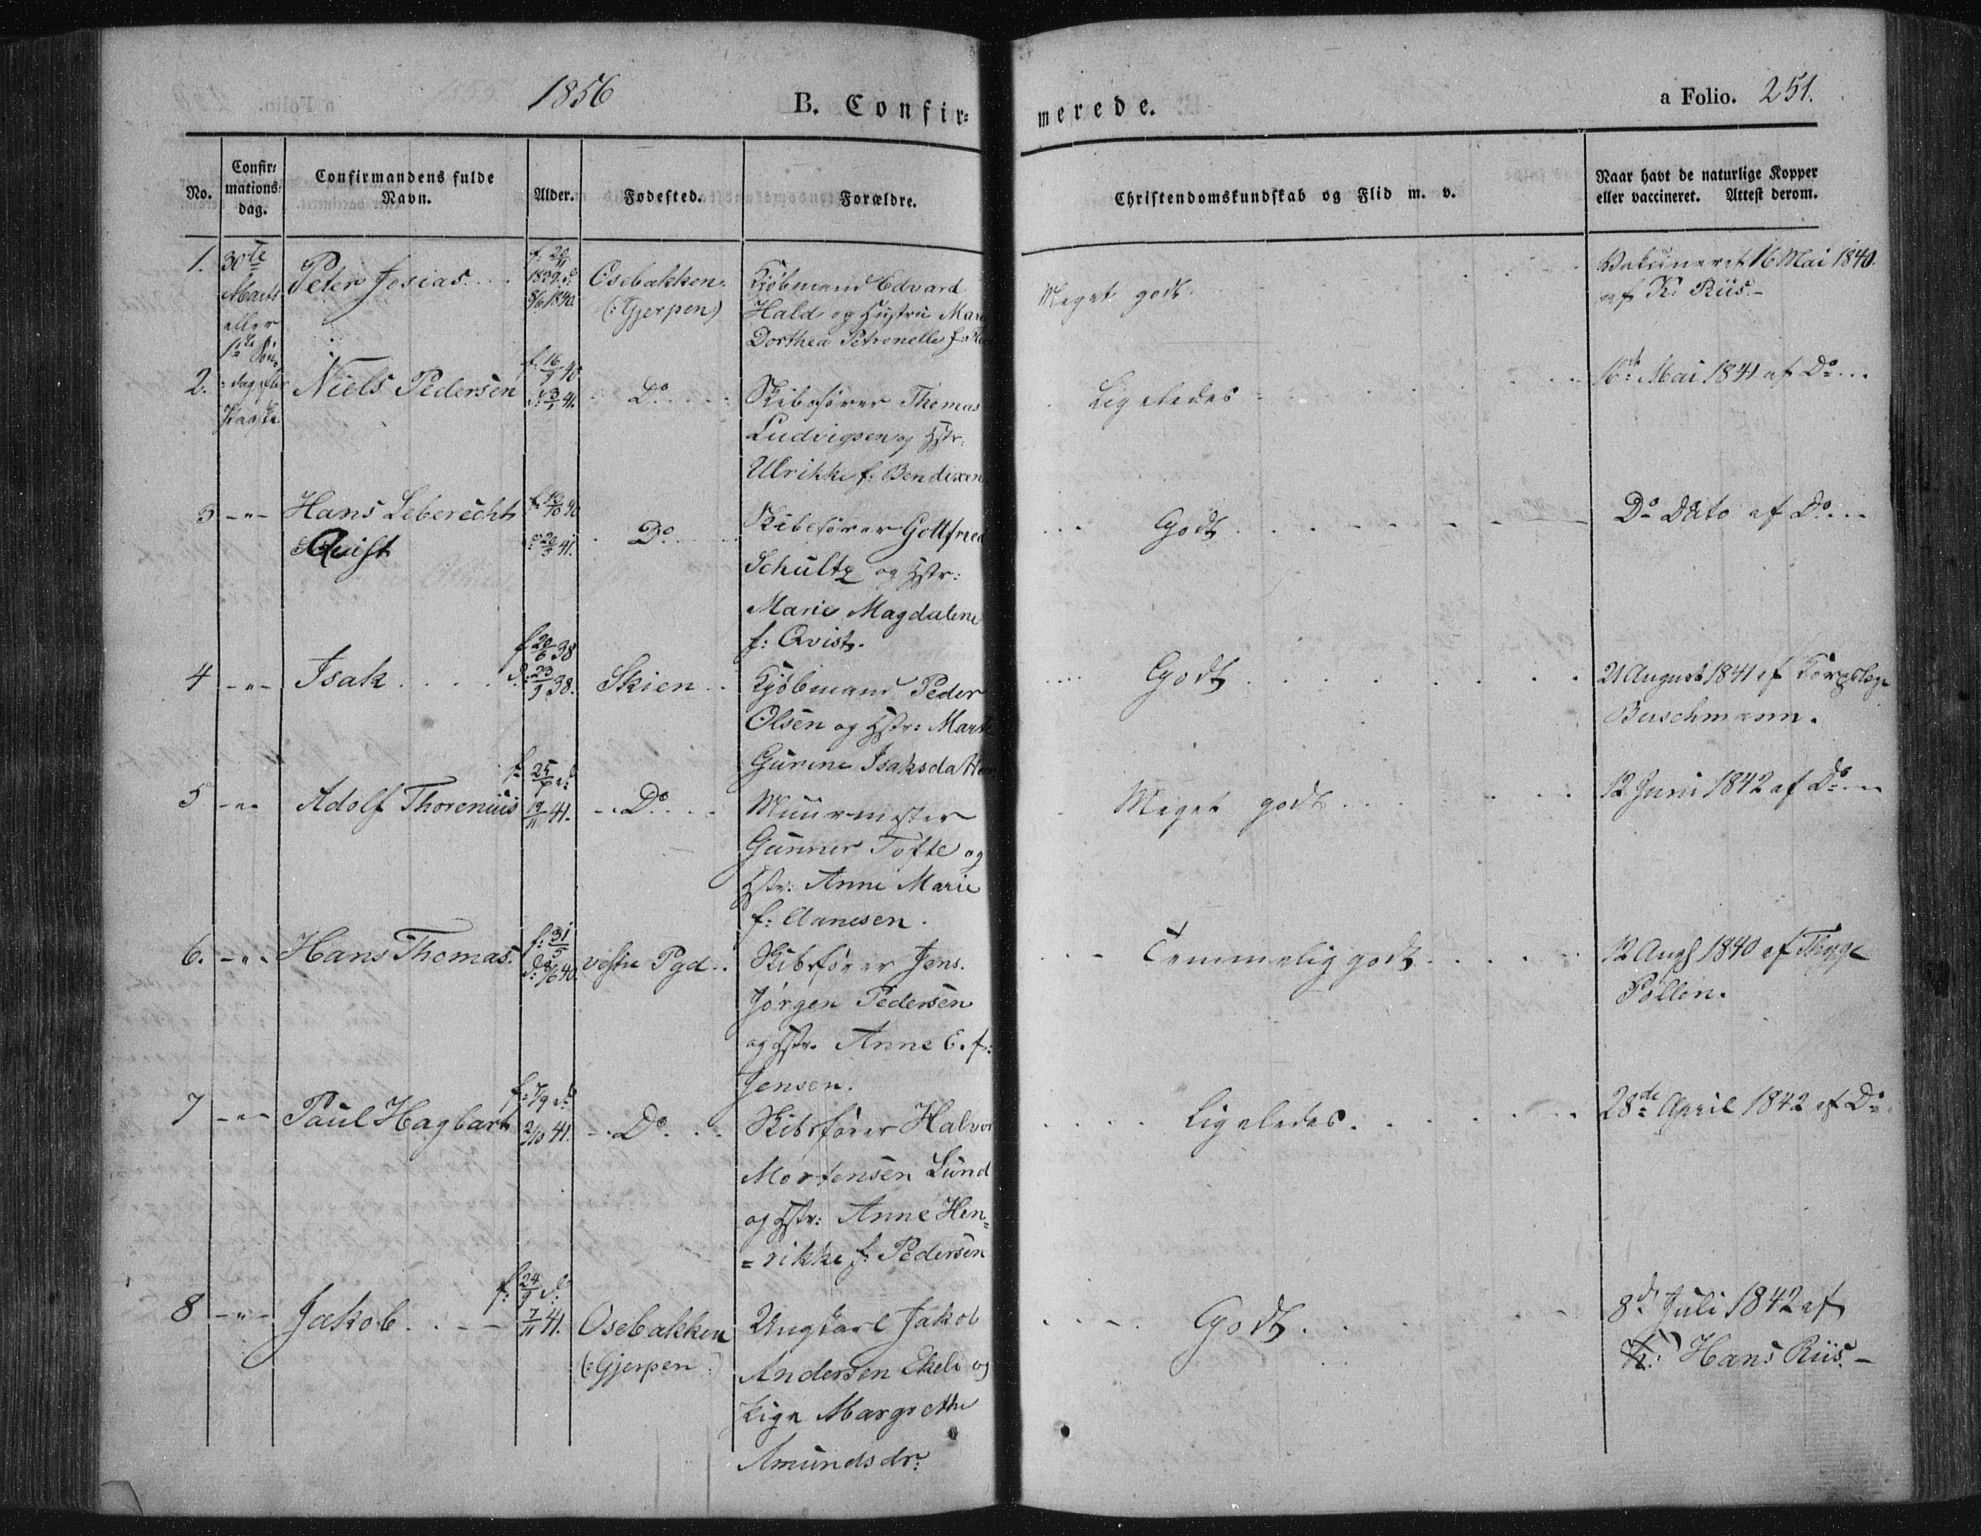 1856
B. Confir= merede.
a Folio. 251.
No.
Confir= mations= dag.
Confirmandens fulde Navn.
Alder.
Fødested.
Forældre.
Christendomskundskab og Flid m. v.
Naar havt de naturlige Kopper
eller vaccineret. Attest derom.
1. 30te Marts eller 1ste Søn= =dag efter Paaske
Peter Josias
f. 20/11 1839 d: 8/6 1840.
Osebakken
(:Gjerpen)
Kjøbmand Edvard
Hald og Hustru
Dorthea Petronelle f:
Meget godt
Vakcineret 16 Mai 1840
af K. Riis.
2. Niels Pedersen
f: 16/9 40
d: 3/5 41.
Do
Skibsfører Thomas
Ludvigsen og Hstr:
Ulrikke f: Bendixen
Ligeledes
16de Mai 1841 af Do
3 -"- Hans Leberecht
Quist
40
41.
Do
Skibsfører Gottfried
Schultz og Hstr:
Marie Magdalene
f: Qvist.
Godt
Do Dato af Do
4 -"- Isak
f 20/6 38
d: 23/9 38.
Skien
Kjøbmand Peder
Olsen og Hstr: Marthe
Gurine Isaksdatter
Godt
21 August 1841 af
Buschmann.
5 -"- Adolf Thorenius
19/11 41.
Do
Muurmester
Gunner Tofte og
Hstr: Anne Marie
f: Aanesen.
Meget godt
12 Juni 1842 af Do
6. -"- Hans Thomas.
f: 31/5
40
Pgd
Skibsfører Jens
Jørgen Pedersen
og Hstr. Anne E. f:
Jensen.
Temmelig godt
12 Augst 1840 af Thyge
Pøllen.
7 -"- Paul Hagbart
f: 7/9 d:
2/10 41.
Do
Skibsfører Halvor
Mortensen Lund
og Hstr: Anne Hen=
=rikke f: Pedersen
Ligeledes
28de April 1842 af Do
8 -"- Jakob
f: 24/9 d:
7/11 41.
Osebakken
(:Gjerpen:)
Ungkarl Jakob
Andersen Ekeli og
Pige Margrethe
Amundsdr:
Godt
8de Juli 1842 af
K: Hans Riis.